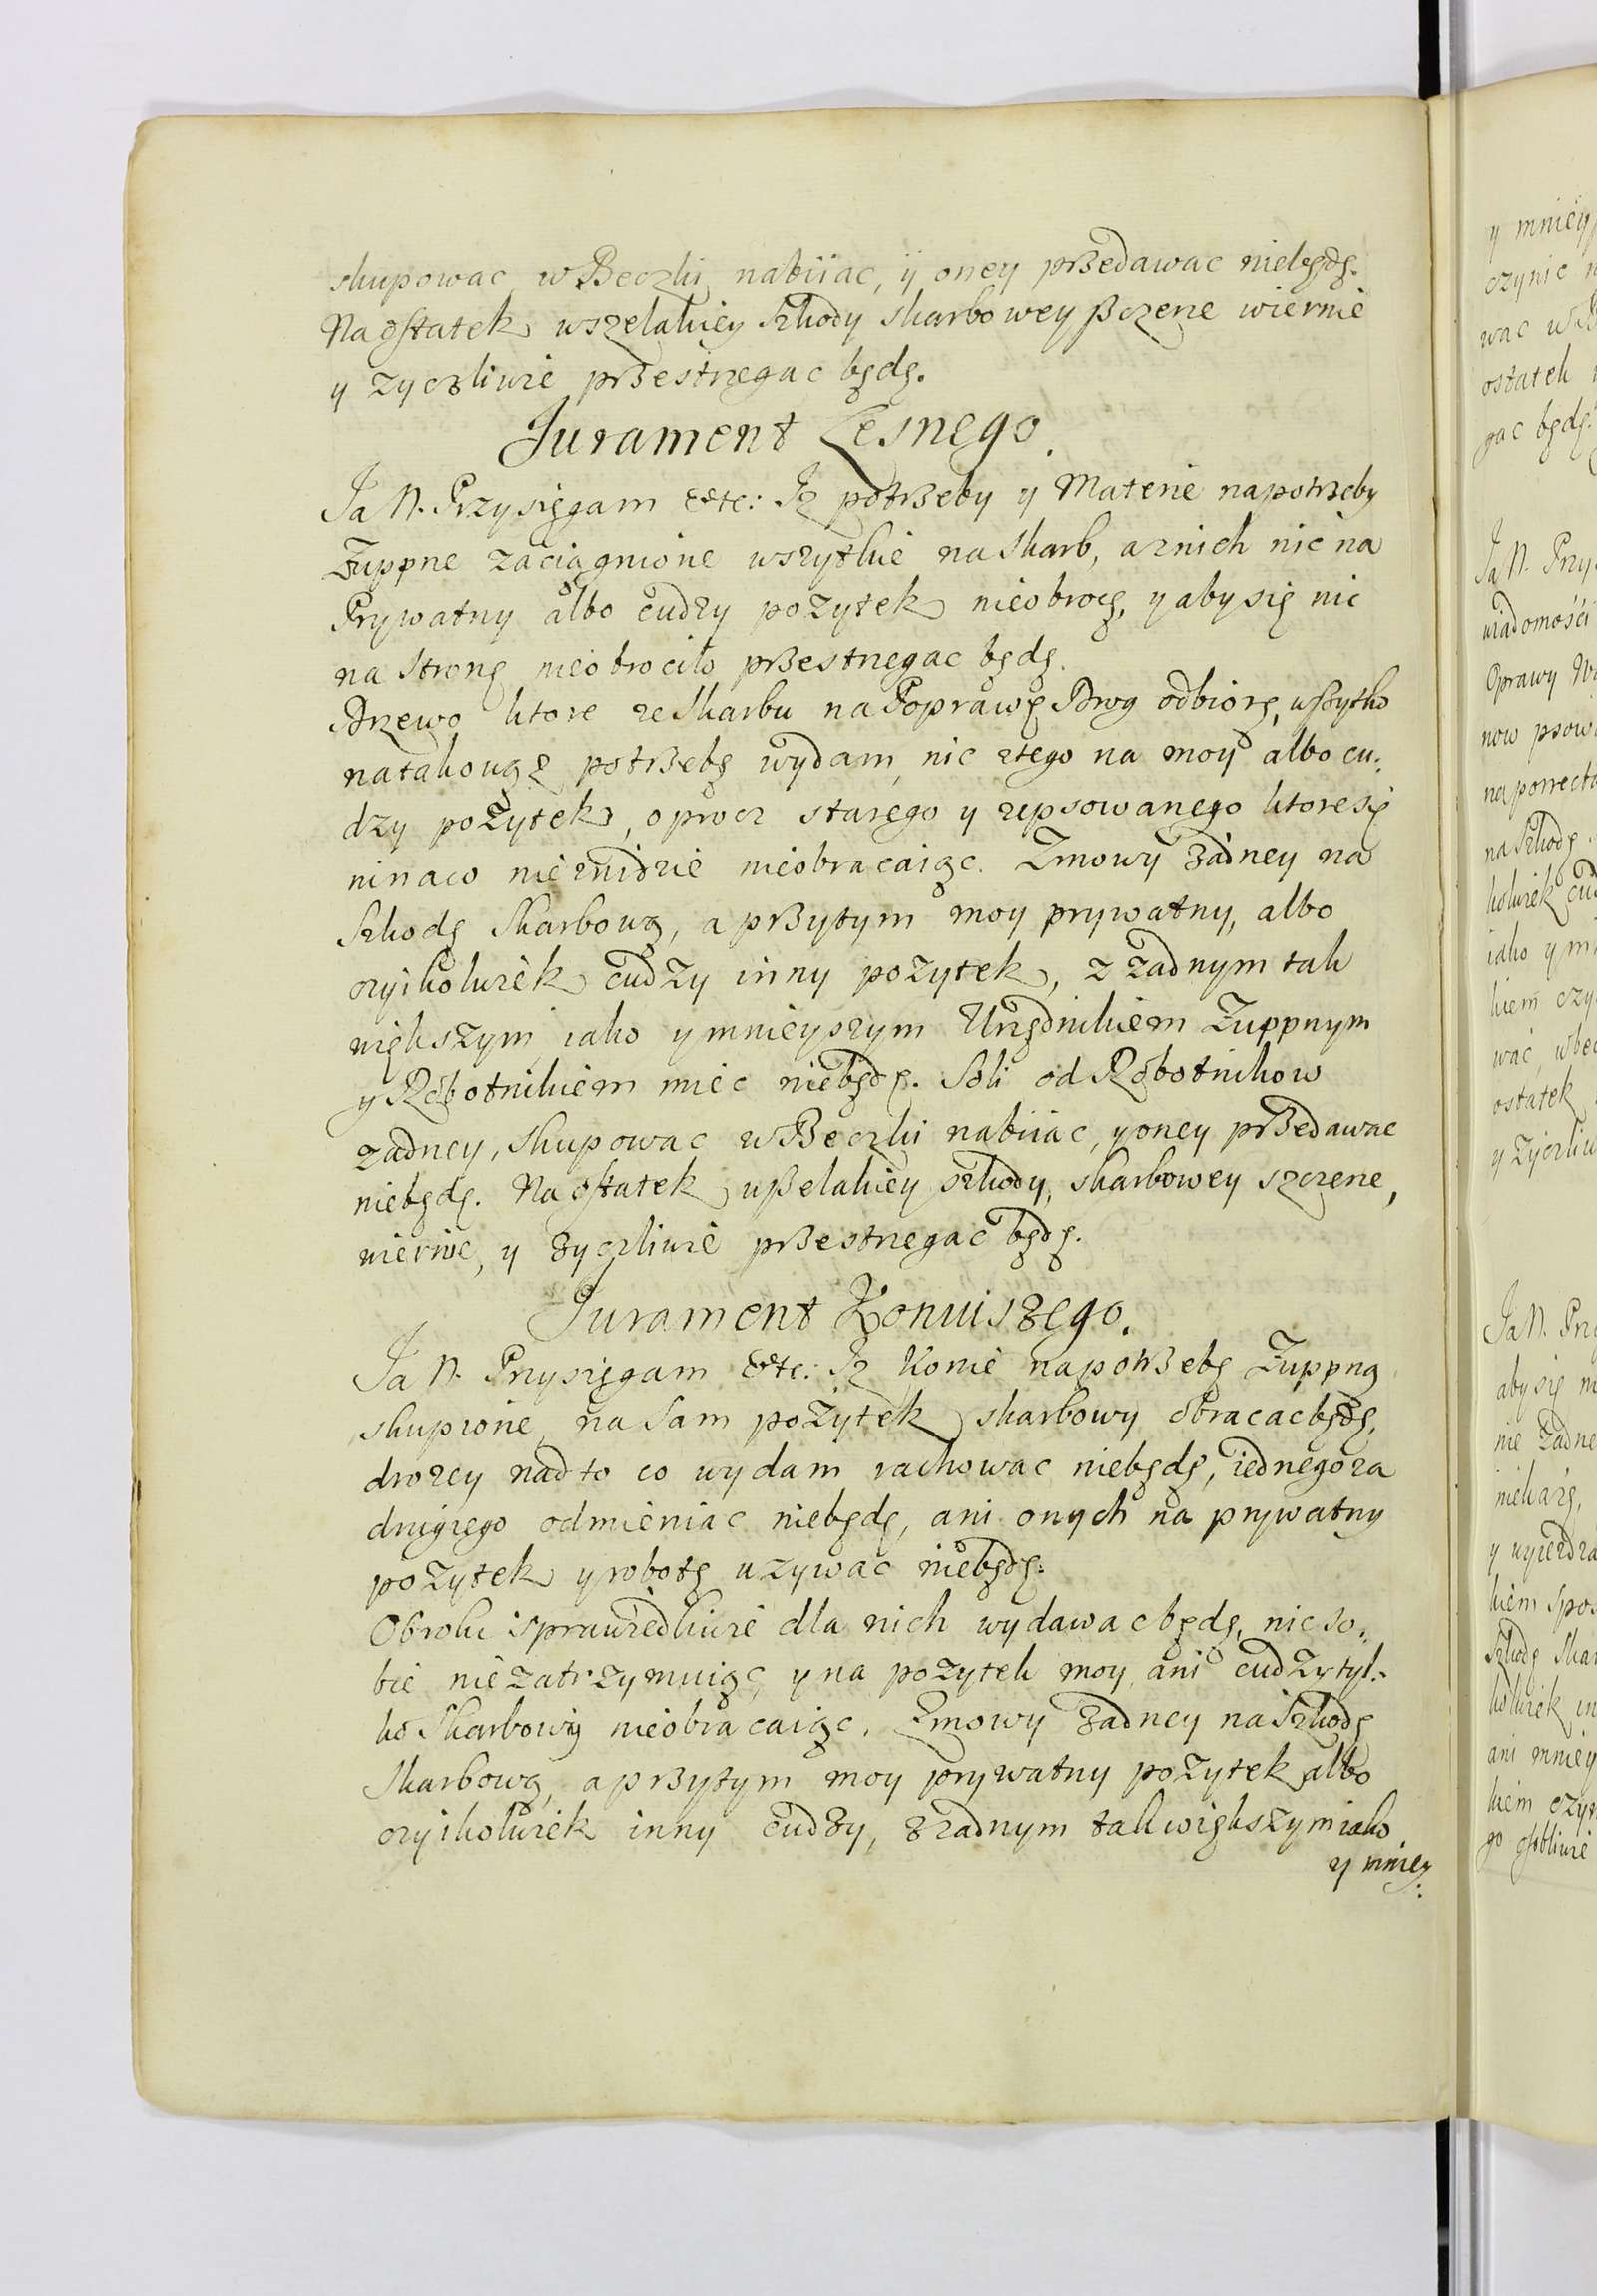 skupowac w Beczki nabiiac, ÿ oney przedawac niebędę.
Na ostatek wszelakiey szkody skarbowey szczerze wiernie
y zyczliwie przestrzegac będę.
Jurament Lesnego.
Ja N. Przysięgam etc: Iz potrzeby y Materie na potrzeby
Zuppne zaciągnione wszytkie na skarb, a z nich nic na
Prywatny albo cudzy pozytek nieobrocę, y aby się nic
na stronę nieobrociło przestrzegac będę.
Drzewo ktore ze skarbu na Poprawę Drog odbiorę, wszytko
na takowąz potrzebę wydam, nic z tego na moy albo cu:
dzy pozytek, oprocz starego y zepsowanego ktore się
ninaco nieznidzie nieobracaiąc. Zmowy zadney na
szkodę skarbową, a przytym moy prywatny, albo
czyikolwiek cudzy inny pozytek, z zadnym tak
większym iako y mnieyszym Urzędnikiem Zuppnym
y Robotnikiem miec niebędę. Soli od Robotnikow
zadney, skupowac w Beczki nabiiac, y oney przedawac
niebędę. Na ostatek wszelakiey szkody, skarbowey szczerze,
wiernie, y zyczliwie przestrzegac będę.
Jurament Koniuszego.
Ja N. Przysięgam etc: Iz Konie na potrzebę Zuppną
skupione na sam pozytek skarbowy obracac będę,
drozey nad to co wydam rachowac niebędę, iednego za
drugiego odmieniac niebędę, ani onych na prywatny
pozytek y robotę uzywac niebędę.
Obroki sprawiedliwie dla nich wydawac będę, nic so:
bie niezatrzymuiąc, y na pozytek moy, ani cudzy tyl:
ko skarbowy nieobracaiąc. Zmowy zadney na szkodę
skarbową, a przytym moy prywatny pozytek albo
czyikolwiek inny cudzy, z zadnym tak większym iako
y mniey:
y mniey
czynic
wac
ostatek
gac będę.
Ja N. Przy
wiadomości
Oprawy
now psow
na
na szkodę
kolwiek cud
iako y m
kiem czy
wac, w bec
ostatek
y zyczliw
Ja N. Prz
aby się n
nie zadne
y
kiem spos
szkodę skar
kolwiek in
ani mniey
kiem czyn
go